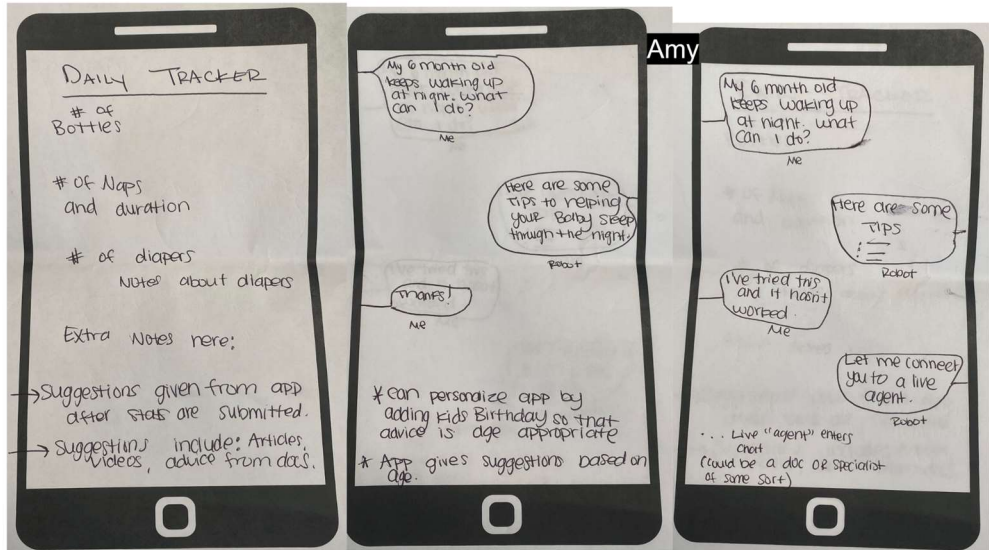 DAILY TRACKER
# of
Bottles
# of Naps
and duration
# of diapers
Notes about diapers
Extra Notes here:
→ Suggestions given from app
after stats are submitted.
→ Suggestions include: Articles,
videos, advice from docs.
My 6 month old
keeps waking up
at night. What
can I do?
Me
Here are some
TIPS to helping
your Baby sleep
through the night.
Robot
Thanks!
Me
* can personalize app by
adding kids Birthday so that
advice is age appropriate
* App gives suggestions based on
age.
Amy
My 6 month old
keeps waking up
at night. What
can I do?
Me
Here are some
TIPS
Robot
I've tried this
and it hasn't
worked.
Me
Let me connect
you to a live
agent.
Robot
... Live "agent" enters
chat
(could be a doc OR specialist
of some sort)